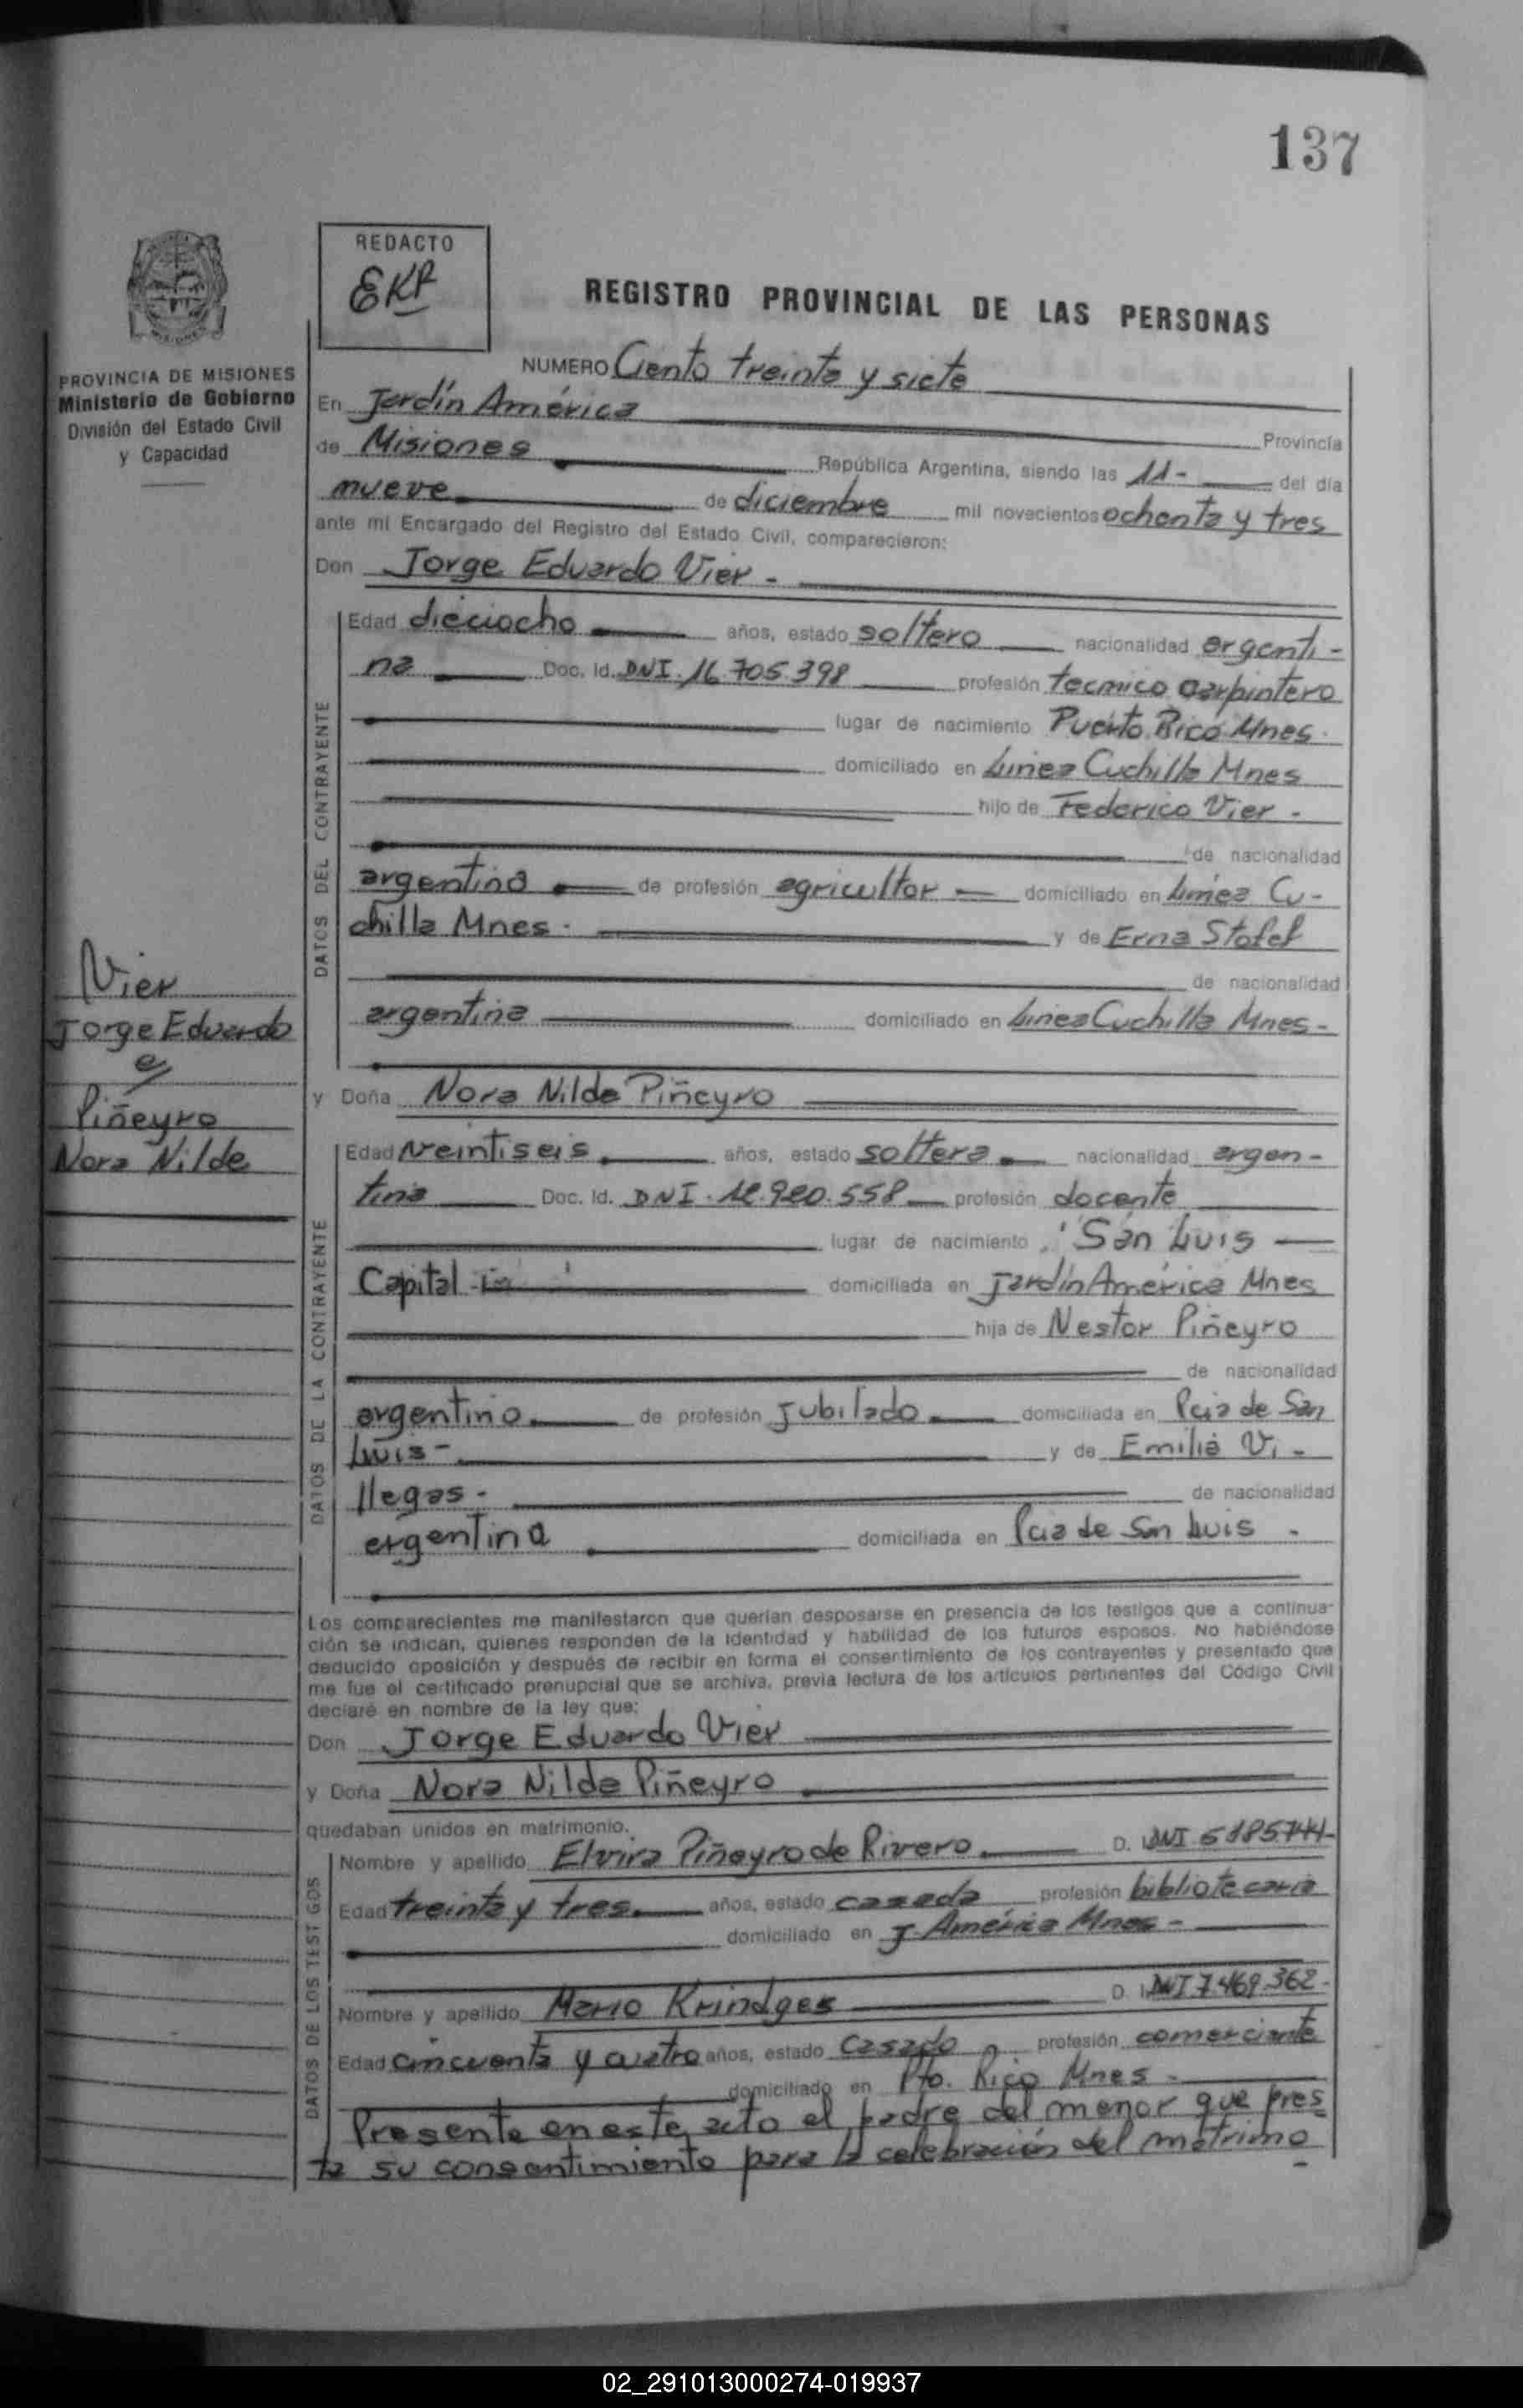 137
REDACTO
EKP
REGISTRO PROVINCIAL DE LAS PERSONAS
PROVINCIA DE MISIONES
Ministerio de Gobierno
División del Estado Civil
y Capacidad
NUMERO Ciento treinta y siete
En Jardín América Provincia
de Misiones República Argentina, siendo las 11- del día
nueve de diciembre mil novecientos ochenta y tres
ante mí Encargado del Registro del Estado Civil, comparecieron:
Don Jorge Eduardo Vier -
DATOS DEL CONTRAYENTE
Edad dieciocho años, estado soltero nacionalidad argenti-
na Doc. Id. DNI. 16.705.398 profesión tecnico carpintero
lugar de nacimiento Puerto Rico Mnes.
domiciliado en Linea Cuchilla Mnes
hijo de Federico Vier -
de nacionalidad
argentino de profesión agricultor domiciliado en Linea Cu-
chilla Mnes. y de Erna Stofel
de nacionalidad
argentina domiciliado en Linea Cuchilla Mnes-
Vier
Jorge Eduardo
c/
Piñeyro
Nora Nilde
y Doña Nora Nilde Piñeyro
DATOS DE LA CONTRAYENTE
Edad Veintiseis años, estado soltera nacionalidad argen-
tina Doc. Id. DNI. 12.920.558 profesión docente
lugar de nacimiento San Luis
Capital domiciliada en Jardín América Mnes
hija de Nestor Piñeyro
de nacionalidad
argentino de profesión Jubilado domiciliada en Pcia de San
Luis- y de Emilia Vi-
llegas- de nacionalidad
argentina domiciliada en Pcia de San Luis -
Los comparecientes me manifestaron que querían desposarse en presencia de los testigos que a continua-
ción se indican, quienes responden de la identidad y habilidad de los futuros esposos. No habiéndose
deducido oposición y después de recibir en forma el consentimiento de los contrayentes y presentado que
me fue el certificado prenupcial que se archiva, previa lectura de los artículos pertinentes del Código Civil
declaré en nombre de la ley que:
Don Jorge Eduardo Vier
y Doña Nora Nilde Piñeyro
quedaban unidos en matrimonio.
DATOS DE LOS TESTIGOS
Nombre y apellido Elvira Piñeyro de Rivero D. I. DNI 6185744-
Edad treinta y tres años, estado casada profesión bibliotecaria
domiciliado en J. América Mnes-
Nombre y apellido Mario Krindges D. I. DNI 7.469.362-
Edad cincuenta y cuatro años, estado casado profesión comerciante
domiciliado en Pto. Rico Mnes-
Presente en este acto el padre del menor que pres
ta su consentimiento para la celebración del matrimo
-
02_291013000274-019937